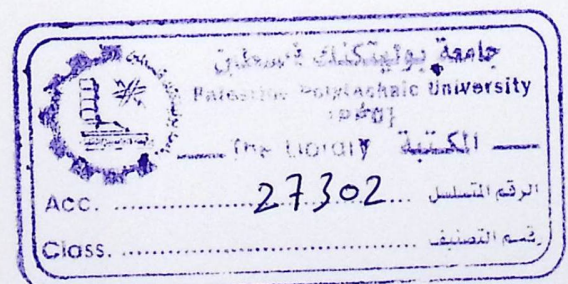 جامعة بوليتكنك فلسطين
Palestine Polytechnic University
(PPU)
The Library المكتبة
Acc. .......... 27302 ... الرقم المتسلسل
Class. .......... رقم التصنيف